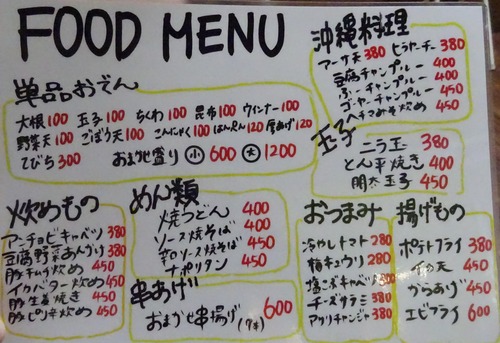 FOOD MENU
単品おでん
大根100 玉子100 ちくわ100 昆布100 ウインナー100
野菜天100 ごぼう天100 こんにゃく100 はんぺん120 厚あげ120
てびち300 おまかせ盛り 小 600 大 1200
沖縄料理
アーサ天380 ヒラヤーチー380
豆腐チャンプルー400
ふーチャンプルー400
ゴーヤーチャンプルー450
ヘチマみそ炒め450
玉子
ニラ玉380
とん平焼き400
明太玉子450
炒めもの
アンチョビキャベツ380
豆腐野菜あんかけ380
豚キムチ炒め450
イカバター炒め450
豚生姜焼き450
豚ピリ辛炒め450
めん類
焼うどん400
ソース焼そば400
辛口ソース焼そば450
ナポリタン450
串あげ
おまかせ串揚げ(7本)600
おつまみ
冷やしトマト280
梅キュウリ280
塩こぶキャベツ380
チーズサラミ380
アサリチャンジャ380
揚げもの
ポテトフライ380
天450
からあげ450
エビフライ600